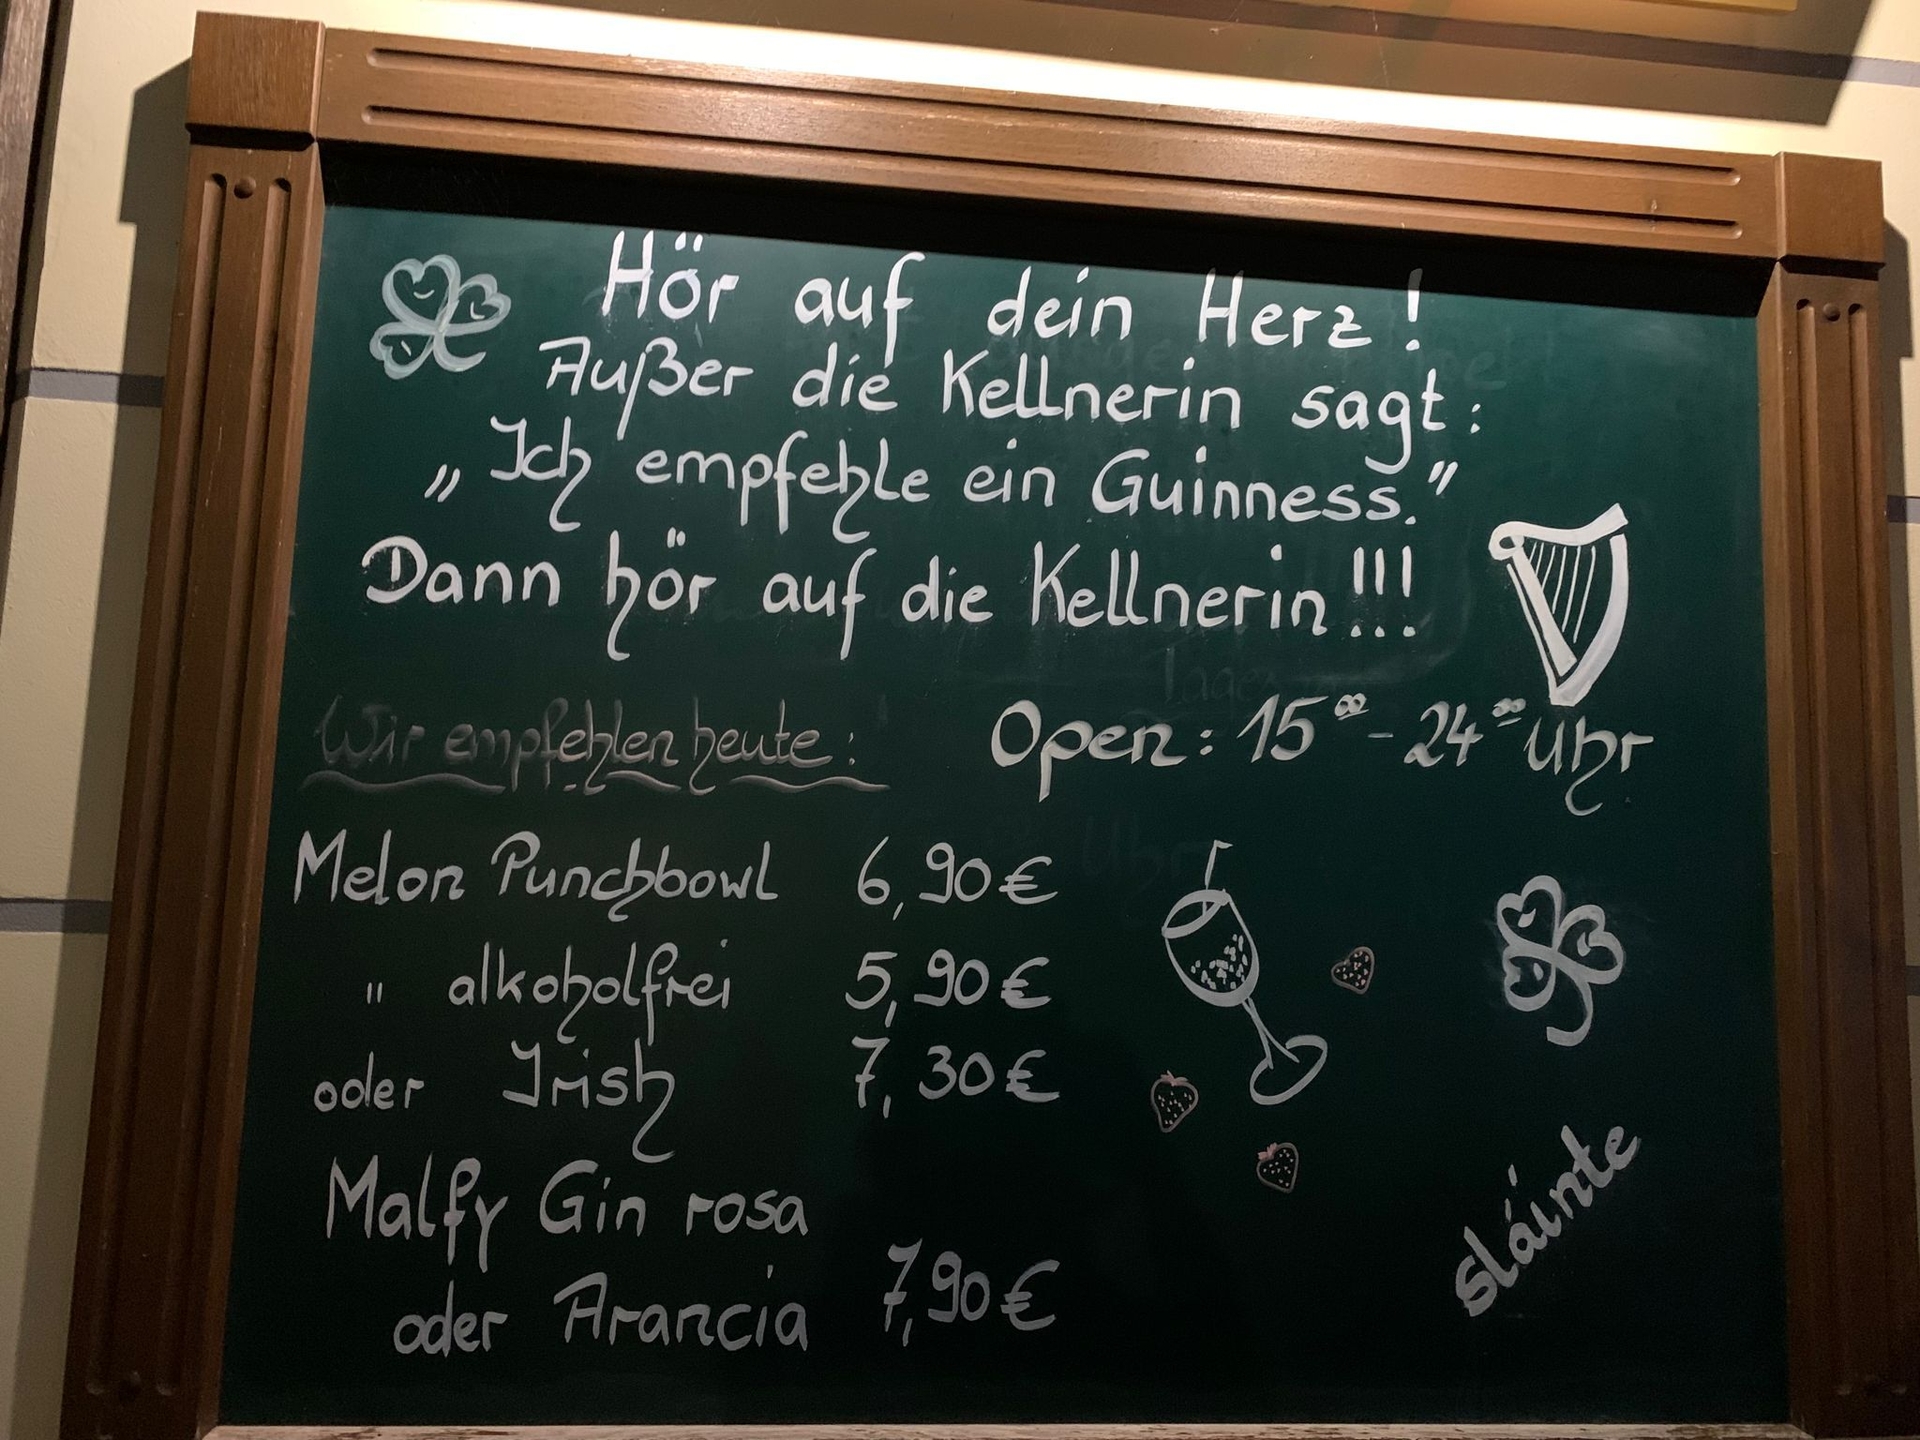 Hör auf dein Herz!
Außer die Kellnerin sagt:
„Ich empfehle ein Guinness."
Dann hör auf die Kellnerin!!!
Wir empfehlen heute:
Open: 15⁰⁰ - 24⁰⁰ Uhr
Melon Punchbowl 6,90 €
" alkoholfrei 5,90 €
oder Irish 7,30 €
Malfy Gin rosa
oder Arancia 7,90 €
sláinte